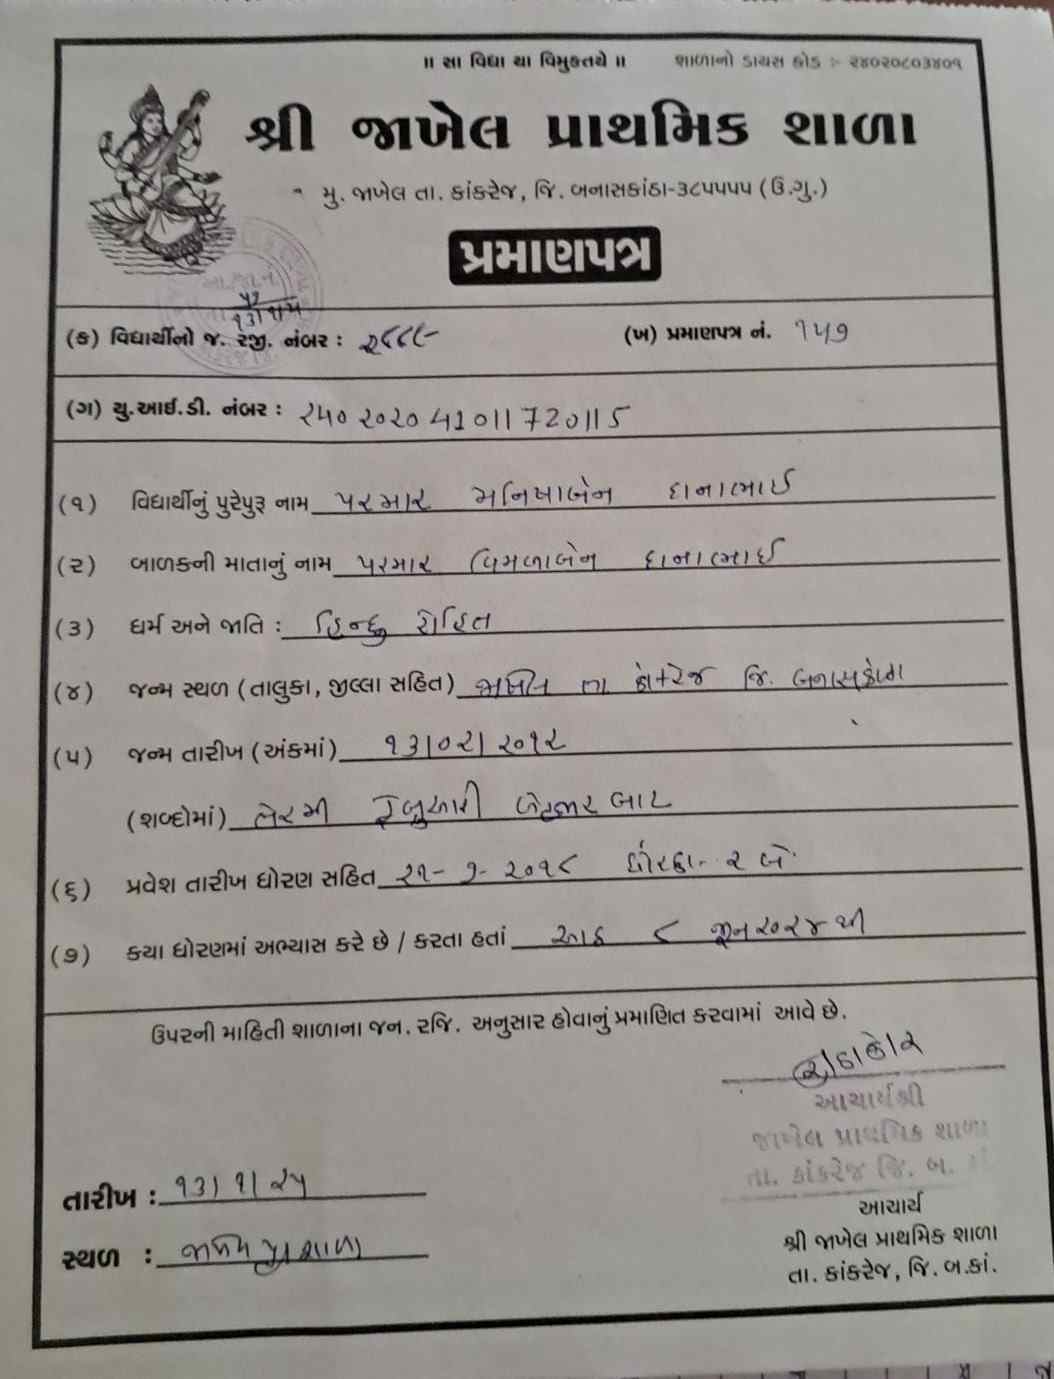 ॥ સા વિદ્યા યા વિમુક્તયે ॥ શાળાનો ડાયસ કોડ :- ૨૪૦૨૦૮૦૩૪૦૧
શ્રી જાખેલ પ્રાથમિક શાળા
મુ. જાખેલ તા. કાંકરેજ, જિ. બનાસકાંઠા-૩૮૫૫૫૫ (ઉ.ગુ.)
પ્રમાણપત્ર
(ક) વિદ્યાર્થીનો જ. રજી. નંબર : ૨૮૮૯ (ખ) પ્રમાણપત્ર નં. ૧૫૭
(ગ) યુ.આઈ.ડી. નંબર : ૨૫૦૨૦૨૦41011720115
(૧) વિદ્યાર્થીનું પુરેપુરૂ નામ પરમાર મનિષાબેન દાનાભાઈ
(૨) બાળકની માતાનું નામ પરમાર વિમળાબેન દાનાભાઈ
(૩) ધર્મ અને જાતિ : હિન્દુ રોહિત
(૪) જન્મ સ્થળ (તાલુકા, જીલ્લા સહિત) જાખેલ તા કાંકરેજ જિ. બનાસકાંઠા
(૫) જન્મ તારીખ (અંકમાં) ૧૩/૦૨/૨૦૧૨
(શબ્દોમાં) તેરમી ફેબ્રુઆરી બેહજાર બાર
(૬) પ્રવેશ તારીખ ધોરણ સહિત ૨૧-૭-૨૦૧૮ ધોરણ-૨ બે
(૭) કયા ધોરણમાં અભ્યાસ કરે છે / કરતા હતાં આઠ ૮ જૂન ૨૦૨૪ થી
ઉપરની માહિતી શાળાના જન. રજિ. અનુસાર હોવાનું પ્રમાણિત કરવામાં આવે છે.
આચાર્યશ્રી
જાખેલ પ્રાથમિક શાળા
તા. કાંકરેજ જિ. બ.
તારીખ : ૧૩/૧/૨૫
આચાર્ય
શ્રી જાખેલ પ્રાથમિક શાળા
સ્થળ : જાખેલ પ્રા શાળા
તા. કાંકરેજ, જિ. બ.કાં.